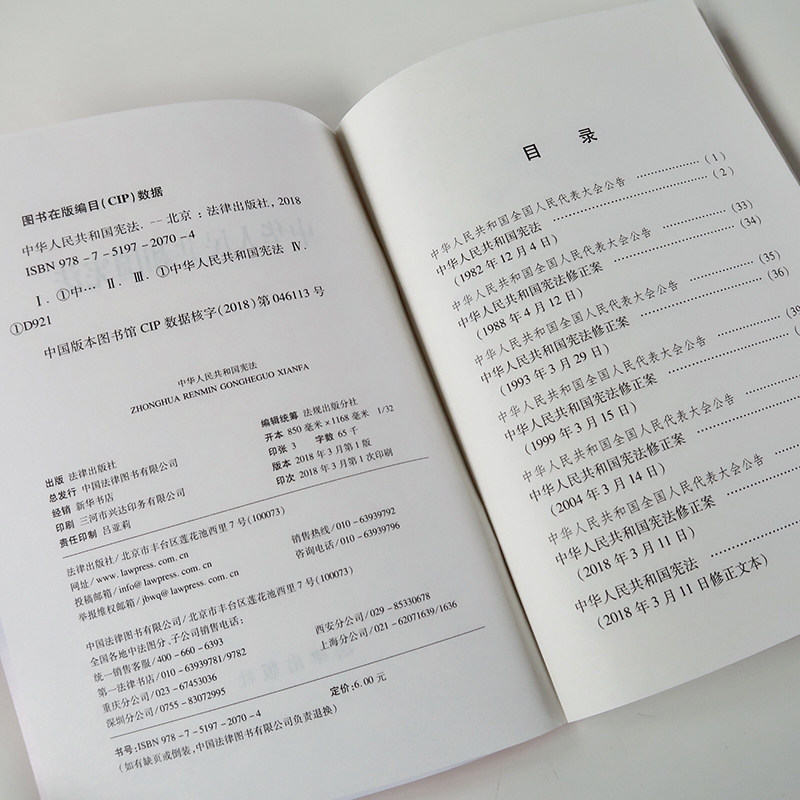 图书在版编目(CIP)数据
中华人民共和国宪法. -- 北京 : 法律出版社, 2018
ISBN 978-7-5197-2070-4
Ⅰ. ①中… Ⅱ. Ⅲ. ①中华人民共和国宪法 Ⅳ.
①D921
中国版本图书馆 CIP 数据核字(2018)第 046113 号
中华人民共和国宪法
ZHONGHUA RENMIN GONGHEGUO XIANFA
出版 法律出版社
总发行 中国法律图书有限公司
经销 新华书店
印刷 三河市兴达印务有限公司
责任印制 吕亚莉
编辑统筹 法规出版分社
开本 850 毫米×1168 毫米 1/32
印张 3 字数 65 千
版本 2018 年 3 月第 1 版
印次 2018 年 3 月第 1 次印刷
法律出版社/北京市丰台区莲花池西里 7 号(100073)
网址/www. lawpress. com. cn
投稿邮箱/info@ lawpress. com. cn
举报维权邮箱/jbwq@ lawpress. com. cn
销售热线/010-63939792
咨询电话/010-63939796
中国法律图书有限公司/北京市丰台区莲花池西里 7 号(100073)
全国各地中法图分、子公司销售电话:
统一销售客服/400-660-6393
第一法律书店/010-63939781/9782
重庆分公司/023-67453036
深圳分公司/0755-83072995
西安分公司/029-85330678
上海分公司/021-62071639/1636
书号:ISBN 978-7-5197-2070-4
定价:6.00 元
(如有缺页或倒装,中国法律图书有限公司负责退换)
目 录
中华人民共和国全国人民代表大会公告 ………… (1)
中华人民共和国宪法 ………… (2)
(1982 年 12 月 4 日)
中华人民共和国全国人民代表大会公告 ………… (33)
中华人民共和国宪法修正案 ………… (34)
(1988 年 4 月 12 日)
中华人民共和国全国人民代表大会公告 ………… (35)
中华人民共和国宪法修正案 ………… (36)
(1993 年 3 月 29 日)
中华人民共和国全国人民代表大会公告 …………
中华人民共和国宪法修正案 …………
(1999 年 3 月 15 日)
中华人民共和国全国人民代表大会公告 …………
中华人民共和国宪法修正案 …………
(2004 年 3 月 14 日)
中华人民共和国全国人民代表大会公告 …………
中华人民共和国宪法修正案 …………
(2018 年 3 月 11 日)
中华人民共和国宪法 …………
(2018 年 3 月 11 日修正文本)